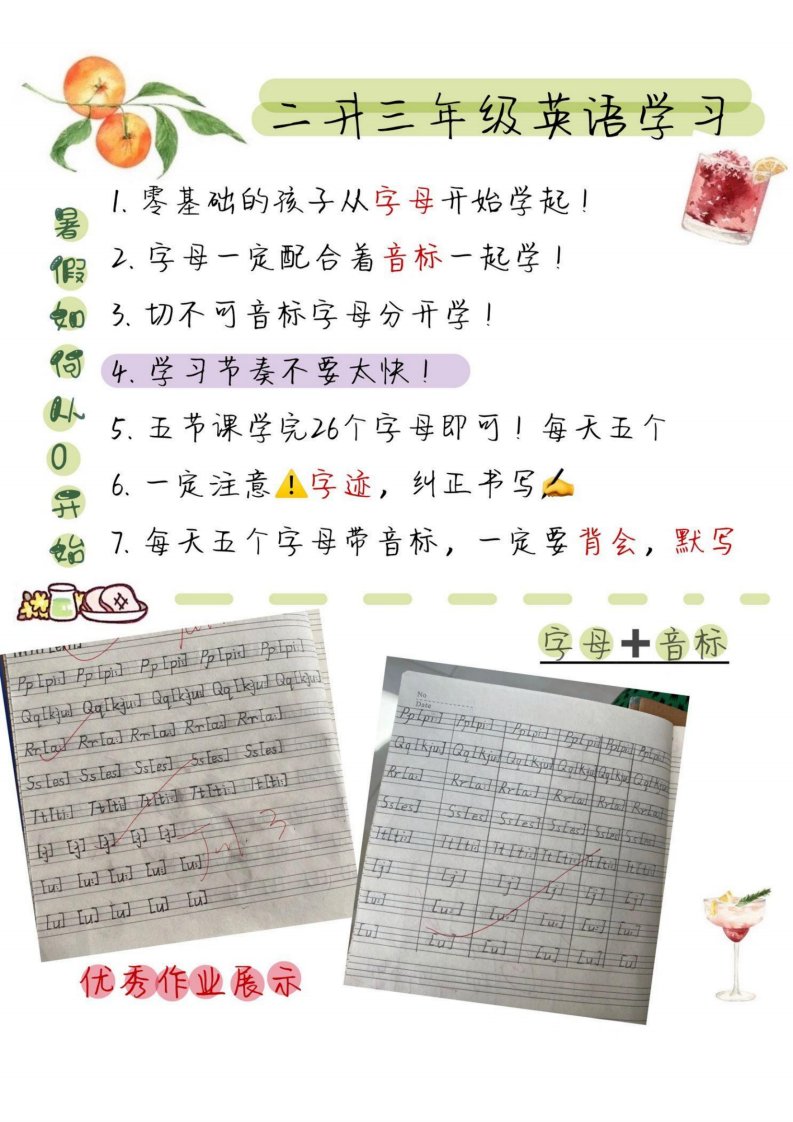 二升三年级英语学习
暑假如何从0开始
1. 零基础的孩子从字母开始学起!
2. 字母一定配合着音标一起学!
3. 切不可音标字母分开学!
4. 学习节奏不要太快!
5. 五节课学完26个字母即可!每天五个
6. 一定注意⚠️字迹,纠正书写✍️
7. 每天五个字母带音标,一定要背会,默写
字母➕音标
Pp[pi:] Pp[pi:] Pp[pi:] Pp[pi:] Pp[pi:]
Qq[kju:] Qq[kju:] Qq[kju:] Qq[kju:] Qq[kju:]
Rr[a:] Rr[a:] Rr[a:] Rr[a:] Rr[a:]
Ss[es] Ss[es] Ss[es] Ss[es] Ss[es]
Tt[ti:] Tt[ti:] Tt[ti:] Tt[ti:] Tt[ti:]
[j] [j] [j] [j] [j]
[u:] [u:] [u:] [u:] [u:]
[u] [u] [u] [u] [u]
No
Date
Pp[pi:] Pp[pi:] Pp[pi:] Pp[pi:] Pp[pi:] Pp[pi:]
Qq[kju:] Qq[kju:] Qq[kju:] Qq[kju:] Qq[kju:] Qq[kju:]
Rr[a:] Rr[a:] Rr[a:] Rr[a:] Rr[a:] Rr[a:]
Ss[es] Ss[es] Ss[es] Ss[es] Ss[es] Ss[es]
Tt[ti:] Tt[ti:] Tt[ti:] Tt[ti:] Tt[ti:] Tt[ti:]
[j] [j] [j] [j] [j] [j]
[u:] [u:] [u:] [u:] [u:] [u:]
[u] [u] [u] [u] [u] [u]
优秀作业展示